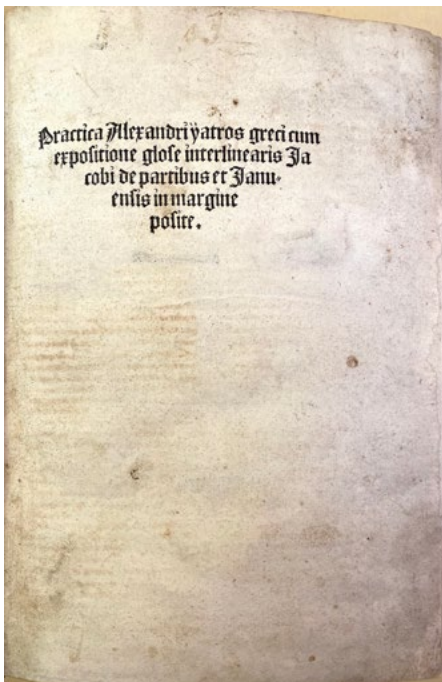 Practica Alexandri yatros greci cum
expositione glose interlinearis Ja
cobi de partibus et Janu-
ensis in margine
posite.